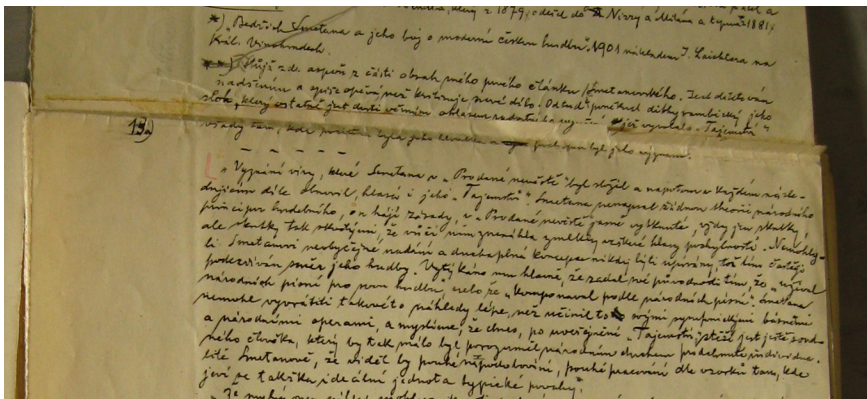 r. 1879, odjel do Nizzy a Milána a kyma 1881
*) „Bedřich Smetana a jeho boj o moderní českou hudbu“, 1901 nákladem J. Laichtera na
Král. Vinohradech.
zde aspoň z části obsah mého prvého článku Smetanovského. Jest dětsky
nadšením a spíše opěvá než kritisuje nové dílo. Odtud pronikal dithyrambický jeho
sloh, který ostatně jest dosti věrným ohlasem radostného jejž vyvolalo „Tajemství“
všady tam, kde
13a)
„Vyznání víry, které Smetana v „Prodané nevěstě“ byl složil a napotom v každém násle-
dujícím díle obnovil, hlásá i jeho „Tajemství“. Smetana nenapsal žádnou theorii národního
principu hudebního, on hájí zásady, v „Prodané nevěstě“ jasně vytknuté, vždy jen skutky,
ale skutky tak skvělými, že vůči nim veškeré hlasy pochybnosti. Nemohly-
li Smetanovi neobyčejné nadání a duchaplná koncepce nikdy býti upírány, toť tím častěji
podezříván směr jeho hudby. Vytýkáno mu hlavně, že zadal své původnosti tím, že „užíval
národních písní pro svou hudbu“ nebo že „komponoval podle národních písní“. Smetana
nemohl vyvrátiti takovéto náhledy lépe, než učinil to svými symfonickými básněmi
a národními operami, a myslíme, že dnes, po uveřejnění „Tajemství“, stěží jest ještě soud-
ného člověka, který by tak málo byl porozuměl národním duchem prodchnuté individua-
litě Smetanově, že viděl by pouhé napodobování, pouhé pracování dle vzorků tam, kde
jeví se takřka ideální jednota typické povahy“.